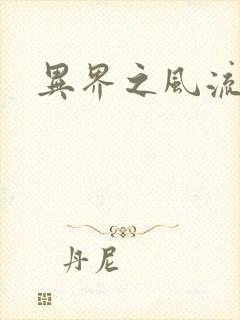 異界之風流
丹尼